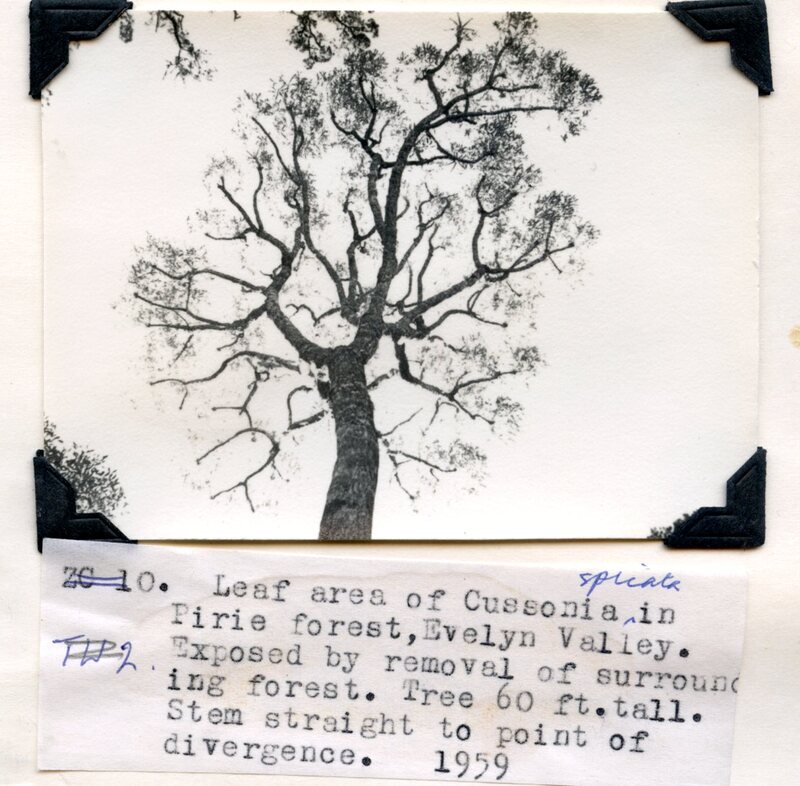 spicata
ZC 10. Leaf area of Cussonia in
Pirie forest, Evelyn Valley.
TW 2. Exposed by removal of surround
ing forest. Tree 60 ft. tall.
Stem straight to point of
divergence. 1959